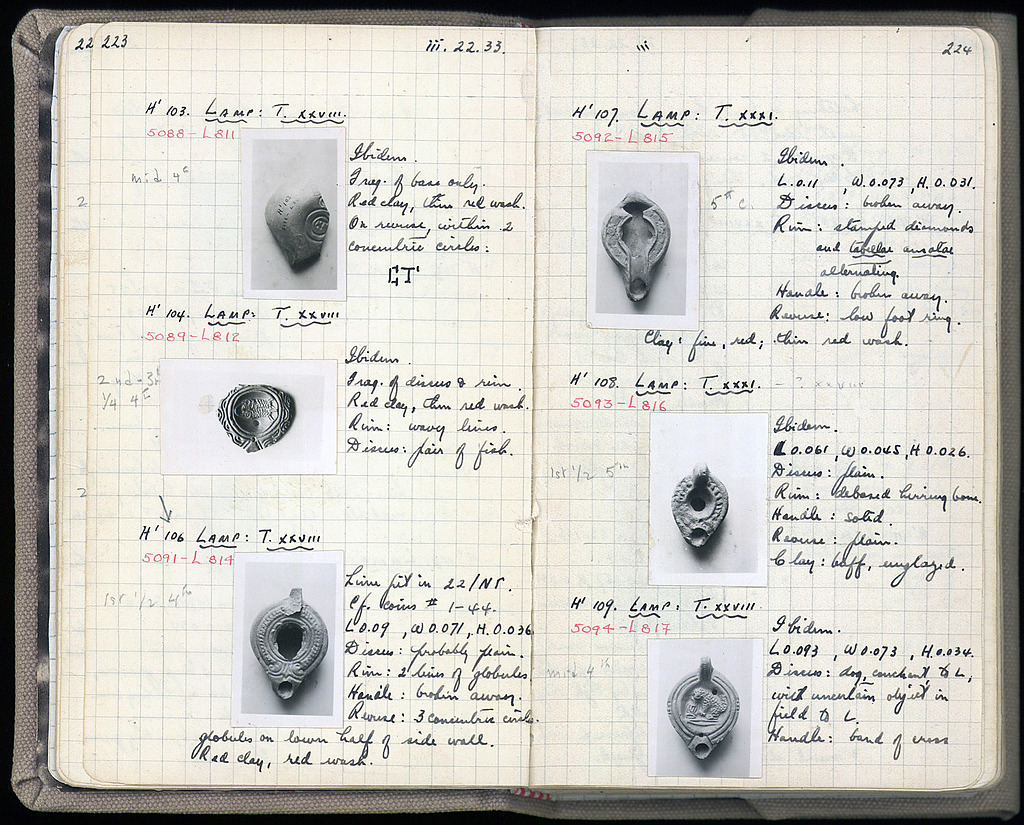 22 223
iii. 22.33.
H' 103. LAMP: T. XXVIII.
5088-L811
mid 4th
Ibidem.
Frag. of base only.
Red clay, thin red wash.
On reverse, within 2
concentric circles:
2
H' 104. LAMP: T. XXVIII
5089-L812
2nd-3rd
1/4 4th
Ibidem.
Frag. of discus & rim.
Red clay, thin red wash.
Rim: wavy lines.
Discus: pair of fish.
2
H' 106 LAMP: T. XXVIII
5091-L814
1st 1/2 4th
Lime pit in 22/
Cf. coins # 1-44.
L 0.09, W 0.071, H. 0.036
Discus: probably plain.
Rim: 2 lines of globules
Handle: broken away.
Reverse: 3 concentric circles.
globules on lower half of side wall.
Red clay, red wash.
iii
224
H' 107. LAMP: T. XXXI.
5092-L815
5th c.
Ibidem.
L. 0.11, W. 0.073, H. 0.031.
Discus: broken away.
Rim: stamped diamonds
and tabellae ansatae
alternating.
Handle: broken away.
Reverse: low foot ring.
Clay: fine, red; thin red wash.
H' 108. LAMP: T. XXXI. - ? XXVIII
5093-L816
1st 1/2 5th
Ibidem.
L 0.061, W 0.045, H 0.026.
Discus: plain.
Rim: debased herring bone.
Handle: solid.
Reverse: plain.
Clay: buff, unglazed.
H' 109. LAMP: T. XXVIII.
5094-L817
mid 4th
Ibidem.
L 0.093, W 0.073, H. 0.034.
Discus: dog, couchant to L,
with uncertain object in
field to L.
Handle: band of cross